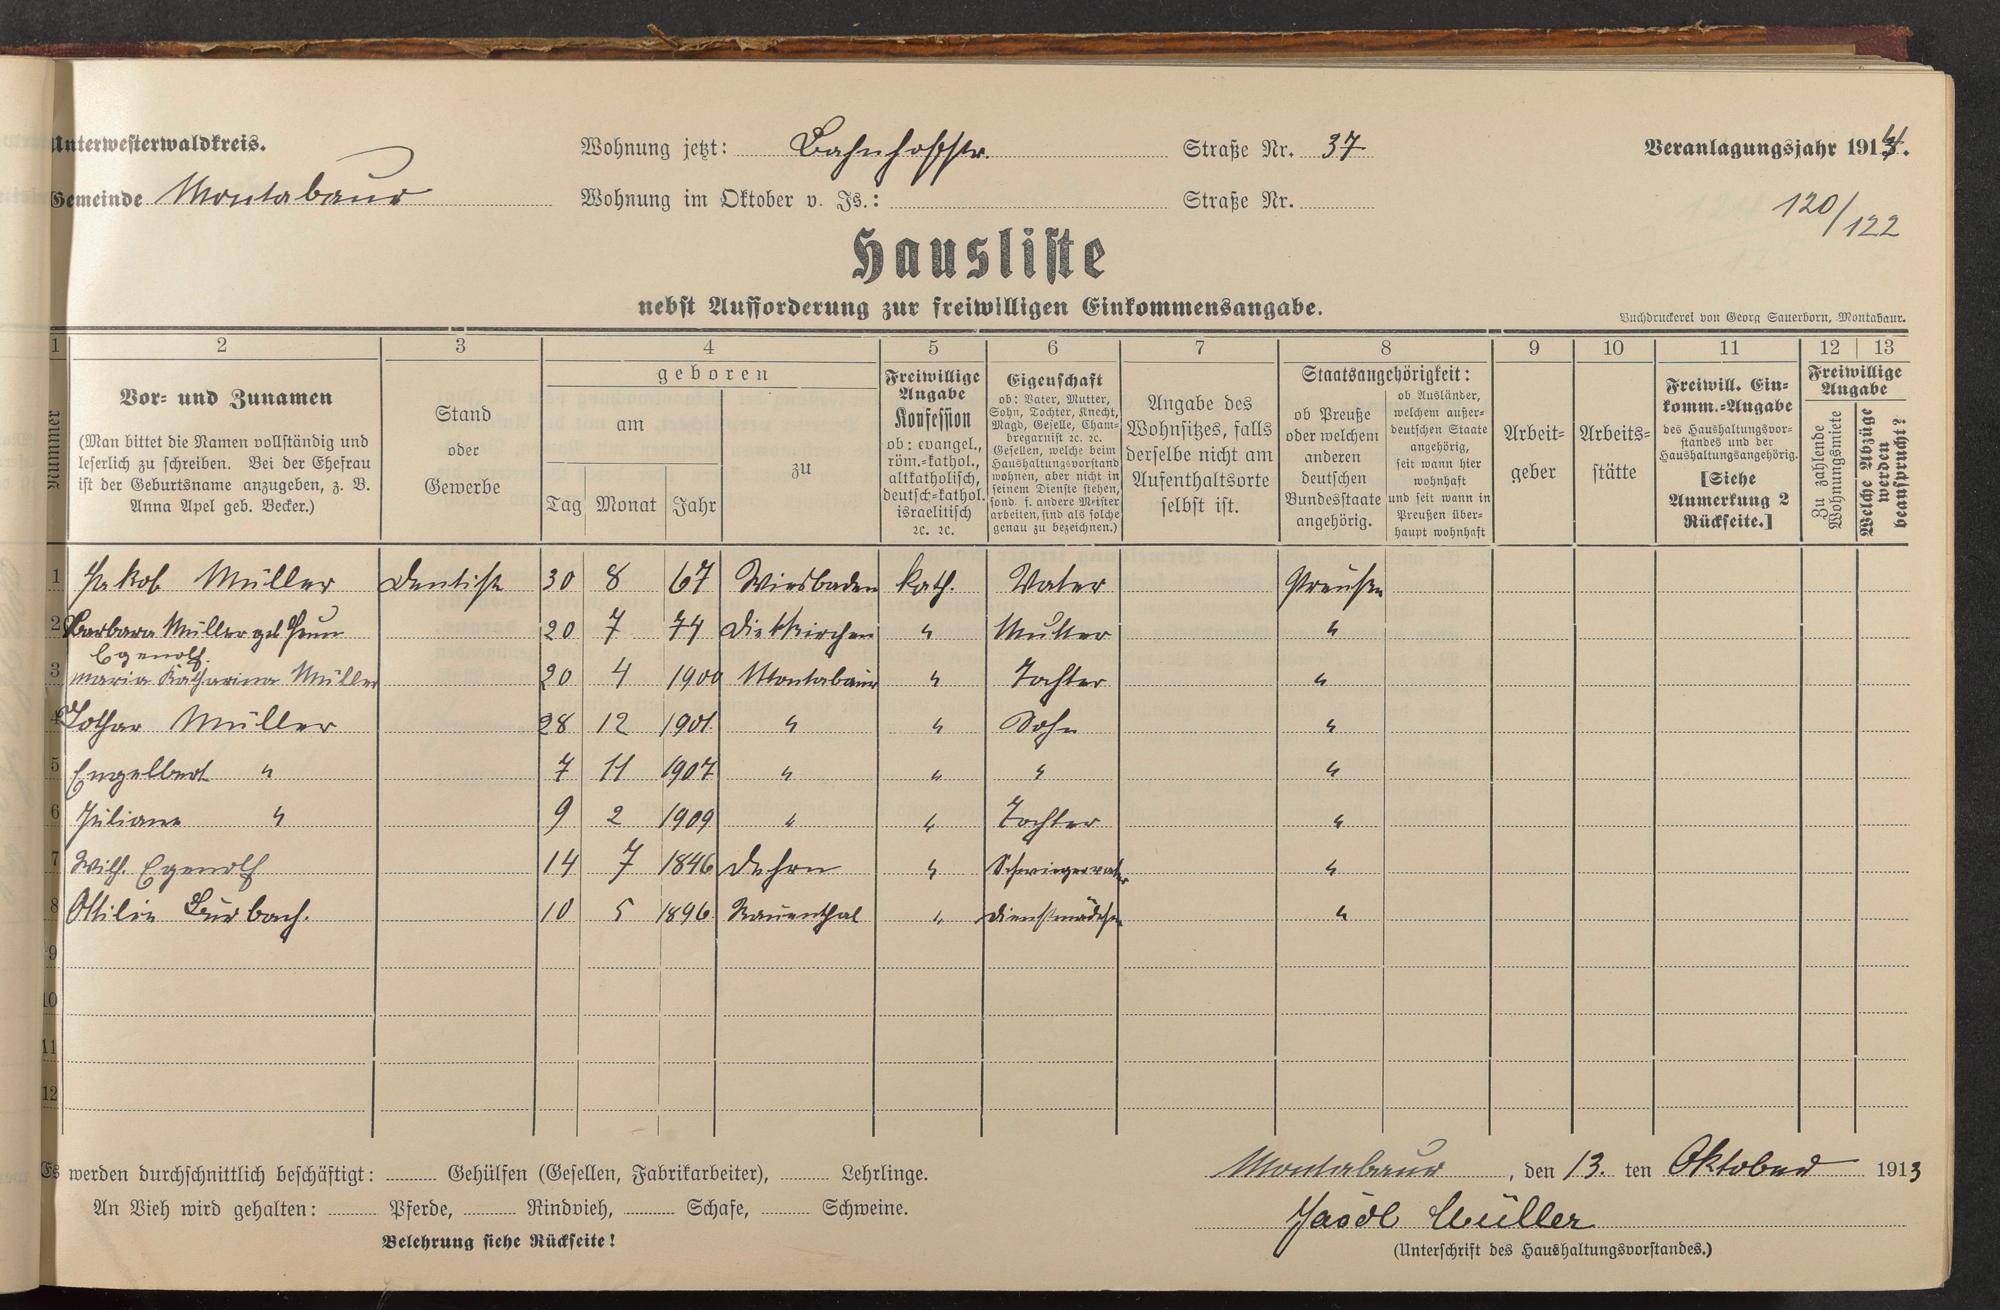 Unterwesterwaldkreis. Wohnung jetzt: Bahnhofstr. Straße Nr. 37 Veranlagungsjahr 1914.
Gemeinde Montabaur Wohnung im Oktober v. Js.: Straße Nr. 120/122
Hausliste
nebst Aufforderung zur freiwilligen Einkommensangabe.
Buchdruckerei von Georg Sauerborn, Montabaur.
1 2 3 4 5 6 7 8 9 10 11 12 13
Nummer
Vor- und Zunamen
(Man bittet die Namen vollständig und
leserlich zu schreiben. Bei der Ehefrau
ist der Geburtsname anzugeben, z. B.
Anna Apel geb. Becker.)
Stand
oder
Gewerbe
geboren
am
Tag Monat Jahr
zu
Freiwillige
Angabe
Konfession
ob: evangel.,
röm.-kathol.,
altkatholisch,
deutsch-kathol.
israelitisch
ꝛc. ꝛc.
Eigenschaft
ob: Vater, Mutter,
Sohn, Tochter, Knecht,
Magd, Geselle, Cham-
bregarnist ꝛc. ꝛc.
Gesellen, welche beim
Haushaltungsvorstand
wohnen, aber nicht in
seinem Dienste stehen,
sond. f. andere Meister
arbeiten, sind als solche
genau zu bezeichnen.)
Angabe des
Wohnsitzes, falls
derselbe nicht am
Aufenthaltsorte
selbst ist.
Staatsangehörigkeit:
ob Preuße
oder welchem
anderen
deutschen
Bundesstaate
angehörig.
ob Ausländer,
welchem außer-
deutschen Staate
angehörig,
seit wann hier
wohnhaft
und seit wann in
Preußen über-
haupt wohnhaft
Arbeit-
geber
Arbeits-
stätte
Freiwill. Ein-
komm.-Angabe
des Haushaltungsvor-
standes und der
Haushaltungsangehörig.
[Siehe
Anmerkung 2
Rückseite.]
Freiwillige
Angabe
Zu zahlende
Wohnungsmiete
Welche Abzüge
werden
beansprucht?
1 Jakob Müller Dentist 30 8 67 Wiesbaden kath. Vater Preußen
2 Barbara Müller geb. 20 7 74 Dietkirchen " Mutter "
Egenolf.
3 Maria Katharina Müller 20 4 1900 Montabaur " Tochter "
4 Lothar Müller 28 12 1901 " " Sohn "
5 Engelbert " 7 11 1907 " " " "
6 Juliane " 9 2 1909 " " Tochter "
7 Wilh. Egenolf 14 7 1846 Dehrn " Schwiegervater "
8 Ottilie Burbach. 10 5 1896 Rauenthal " Dienstmädchen "
9
10
11
12
Es werden durchschnittlich beschäftigt: Gehülfen (Gesellen, Fabrikarbeiter), Lehrlinge.
An Vieh wird gehalten: Pferde, Rindvieh, Schafe, Schweine.
Belehrung siehe Rückseite!
Montabaur, den 13. ten Oktober 1913
Jacob Müller
(Unterschrift des Haushaltungsvorstandes.)